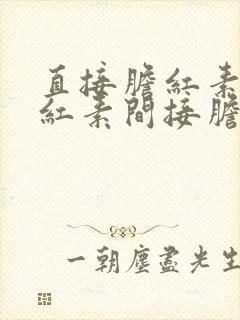 直接膽紅素
紅素間接膽
一朝塵盡光生